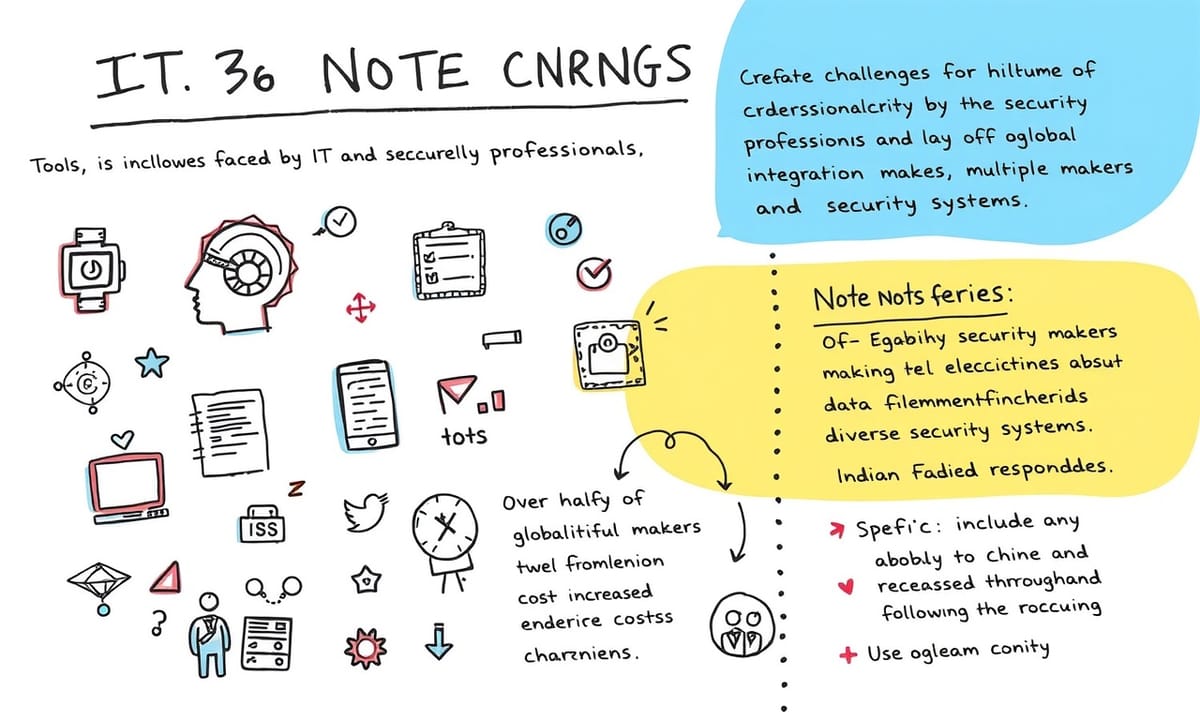 IT. 36 NOTE CNRNGS
Tools, is incllowes faced by IT and seccurelly professionals,
Crefate challenges for hiltume of
crderssionalcrity by the security
professionıs and lay off oglobal
integration makes, multiple makers
and security systems.
Note Nots feries:
Of- Egabihy security makers
making tel eleccictines absut
data filemmentfincherids
diverse security systems.
Indian Fadied responddes.
tots
ISS
Over halfy of
globalitiful makers
twel fromlenion
cost increased
enderire costss
charzniens.
Spefi'c: include any
abobly to chine and
receassed thrroughand
following the roccuing
Use ogleam conity